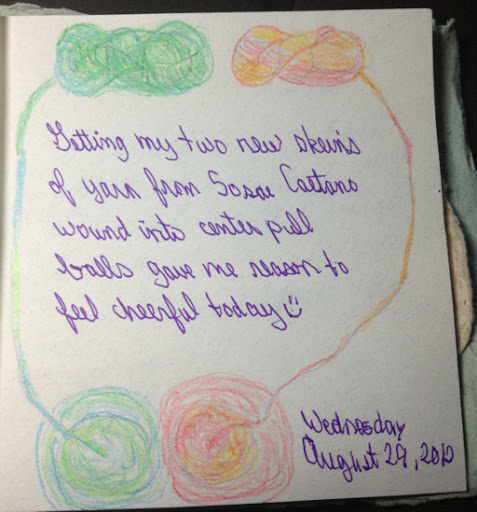 Getting my two new skeins
of yarn from Sosae Caetano
wound into center pull
balls gave me reason to
feel cheerful today
Wednesday
August 29, 2012